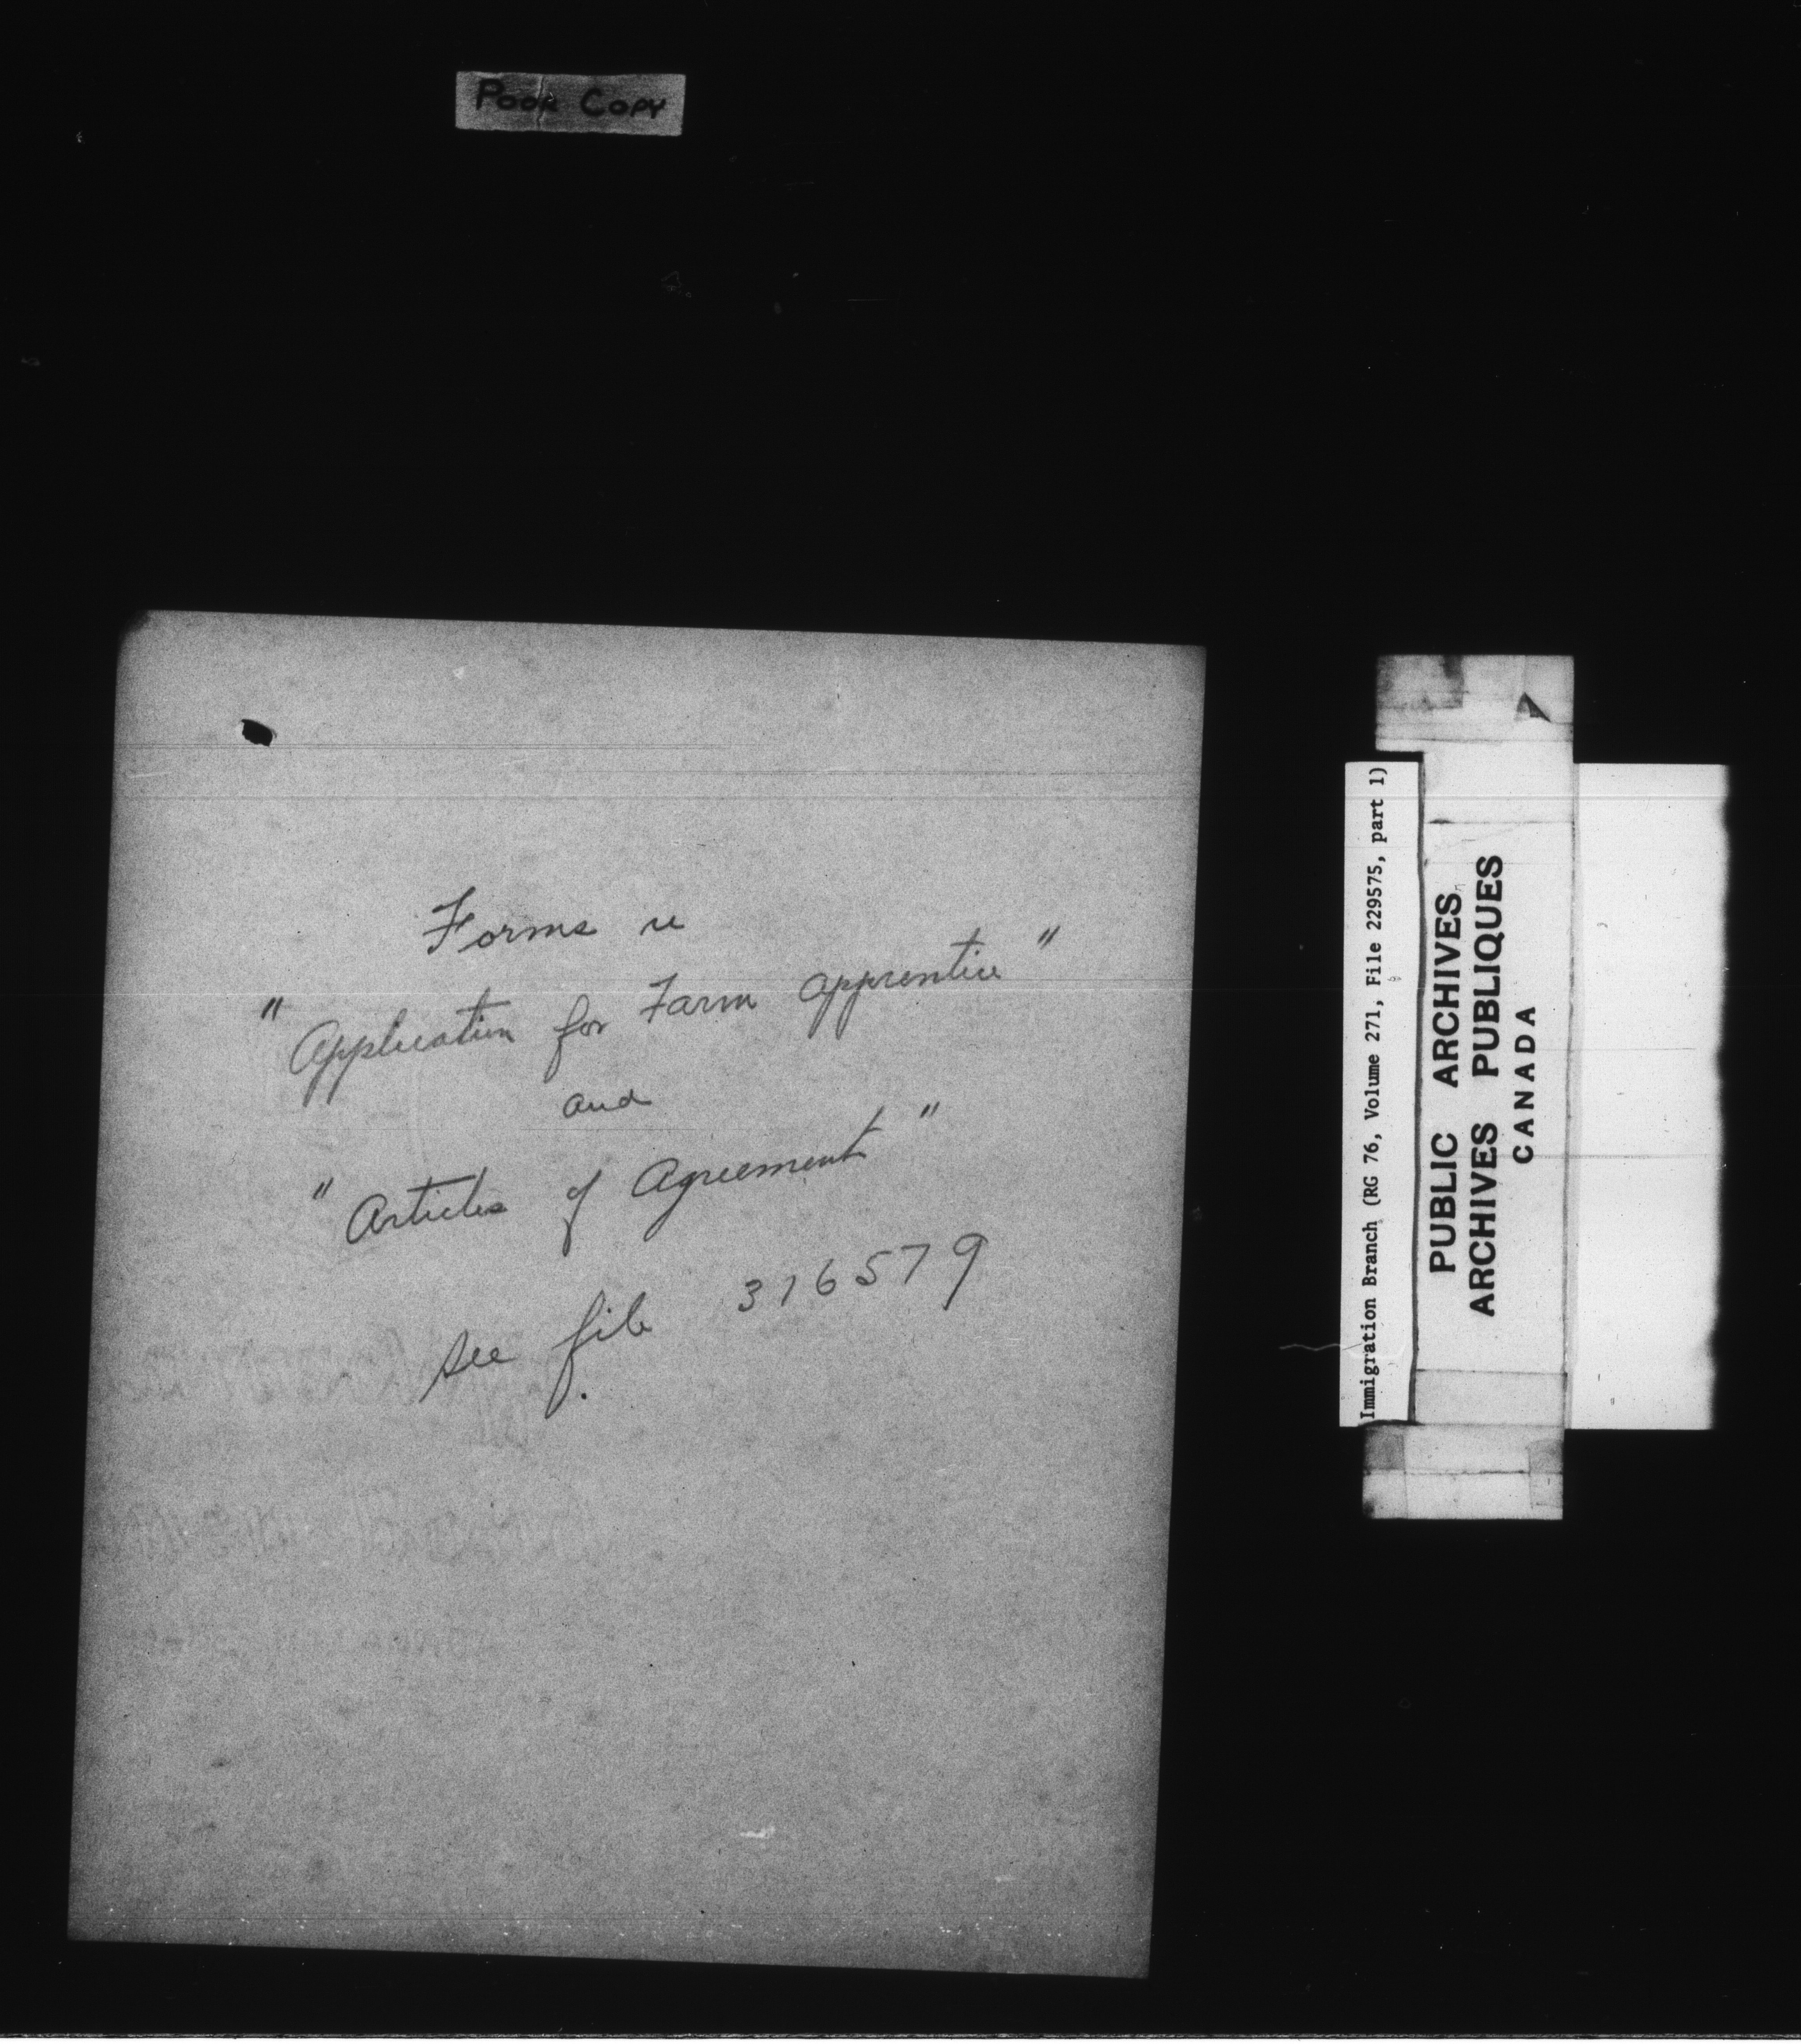 POOR COPY
Forms re
"Application for Farm apprentice"
and
"Articles of Agreement"
See file 316579
Immigration Branch (RG 76, Volume 271, File 229575, part 1)
PUBLIC ARCHIVES
ARCHIVES PUBLIQUES
CANADA